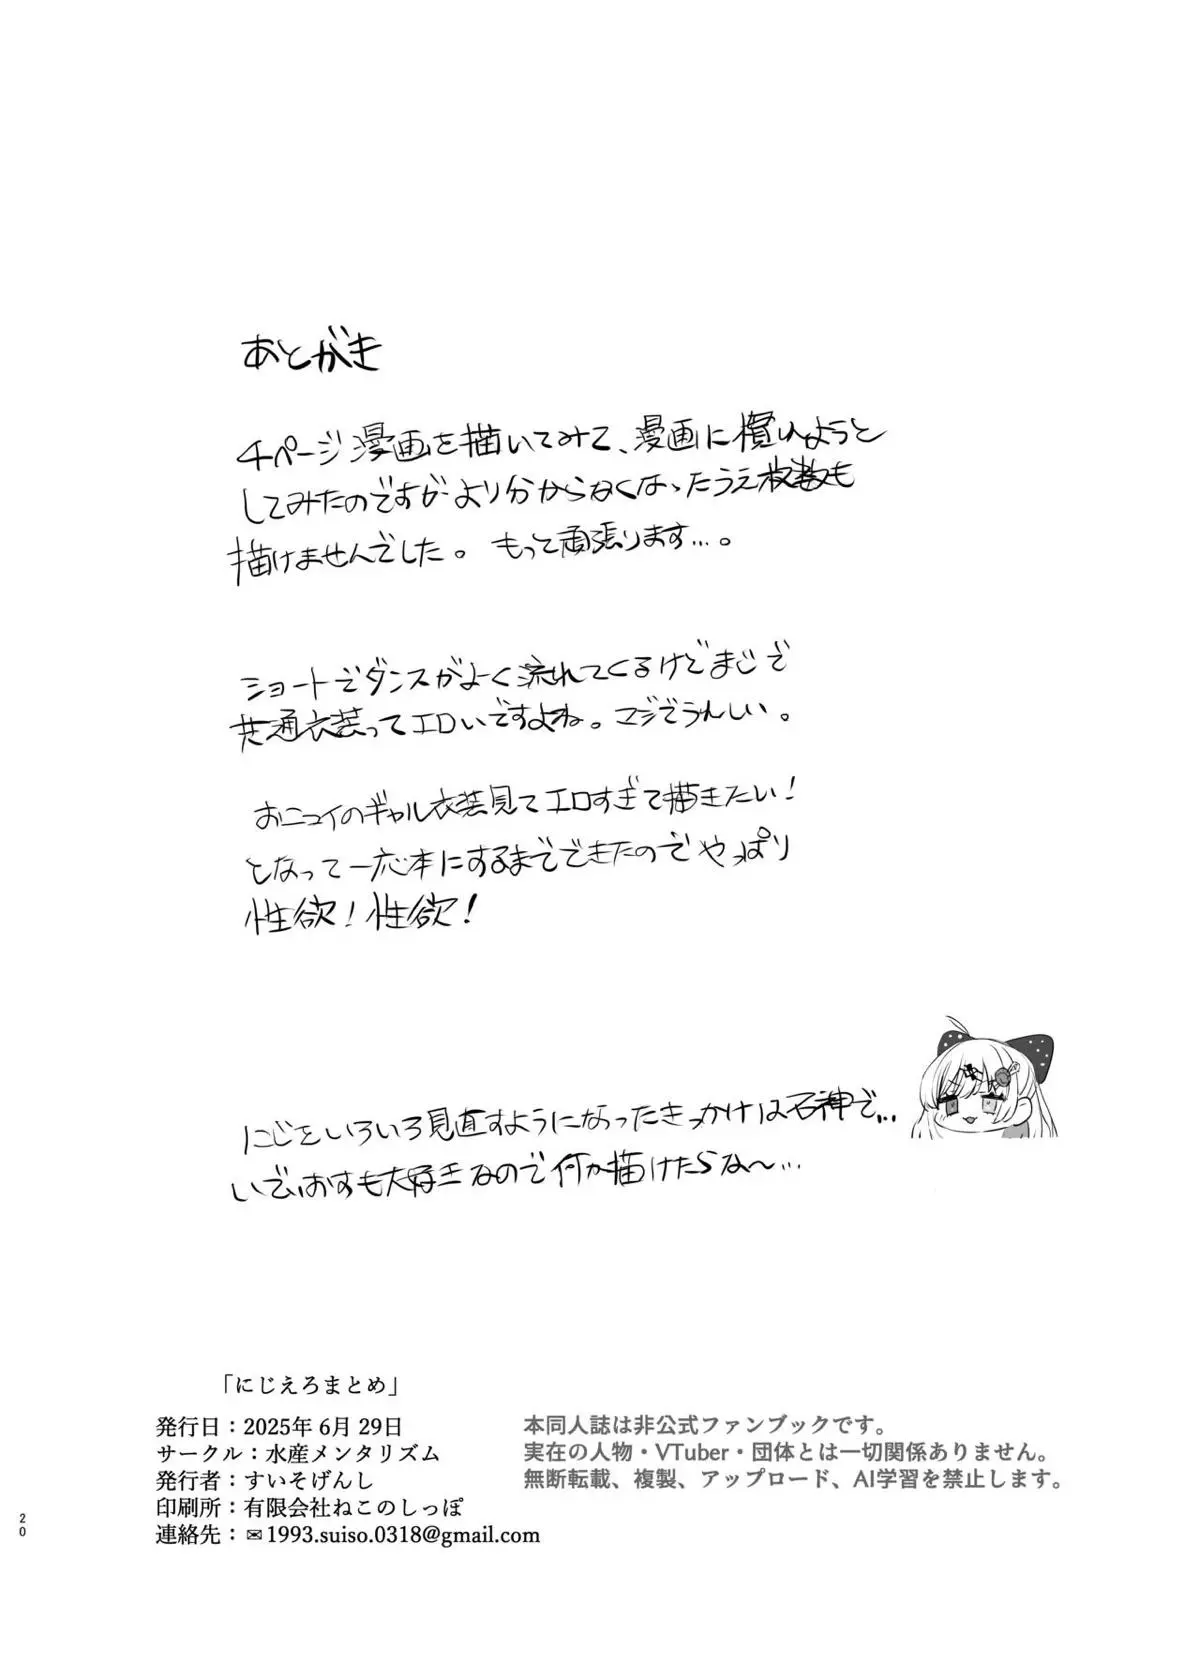 あとがき
4ページ漫画を描いてみて、漫画に慣れようと
してみたのですがより分からなくなったうえ枚数も
描けませんでした。もっと頑張ります…。
ショートでダンスがよく流れてくるけどまじで
共通衣装ってエロいですよね。マジでうれしい。
おニュイのギャル衣装見てエロすぎて描きたい!
となって一応本にするまでできたのでやっぱり
性欲!性欲!
にじをいろいろ見直すようになったきっかけは石神で…
いではすも大好きなので何か描けたらな〜…
「にじえろまとめ」
発行日:2025年 6月 29日
サークル:水産メンタリズム
発行者:すいそげんし
印刷所:有限会社ねこのしっぽ
連絡先:✉1993.suiso.0318@gmail.com
本同人誌は非公式ファンブックです。
実在の人物・VTuber・団体とは一切関係ありません。
無断転載、複製、アップロード、AI学習を禁止します。
20